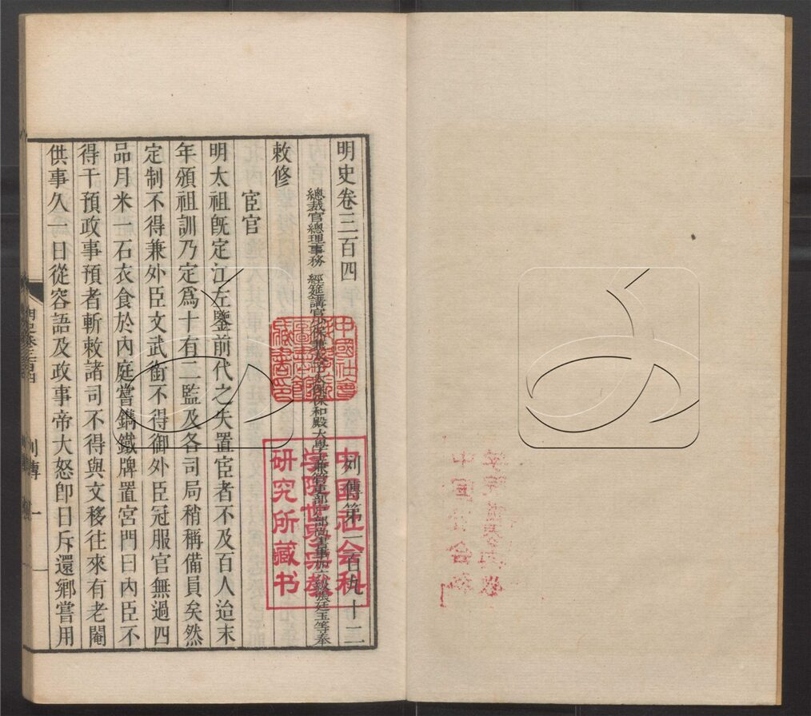 明史卷三百四 列傳第一百九十二
總裁官總理事務 經筵講官少保兼太子太保保和殿大學士兼管吏部戶部尚書事加六級張廷玉等奉
敕修
宦官
明太祖既定江左鑒前代之失置宦者不及百人迨末
年頒祖訓乃定爲十有二監及各司局稍稱備員矣然
定制不得兼外臣文武銜不得御外臣冠服官無過四
品月米一石衣食於內庭嘗鐫鐵牌置宮門曰內臣不
得干預政事預者斬敕諸司不得與文移往來有老閹
供事久一日從容語及政事帝大怒卽日斥還鄉嘗用
明史卷三百四
列傳
一
中國社會科
學院世界宗教
研究所藏书